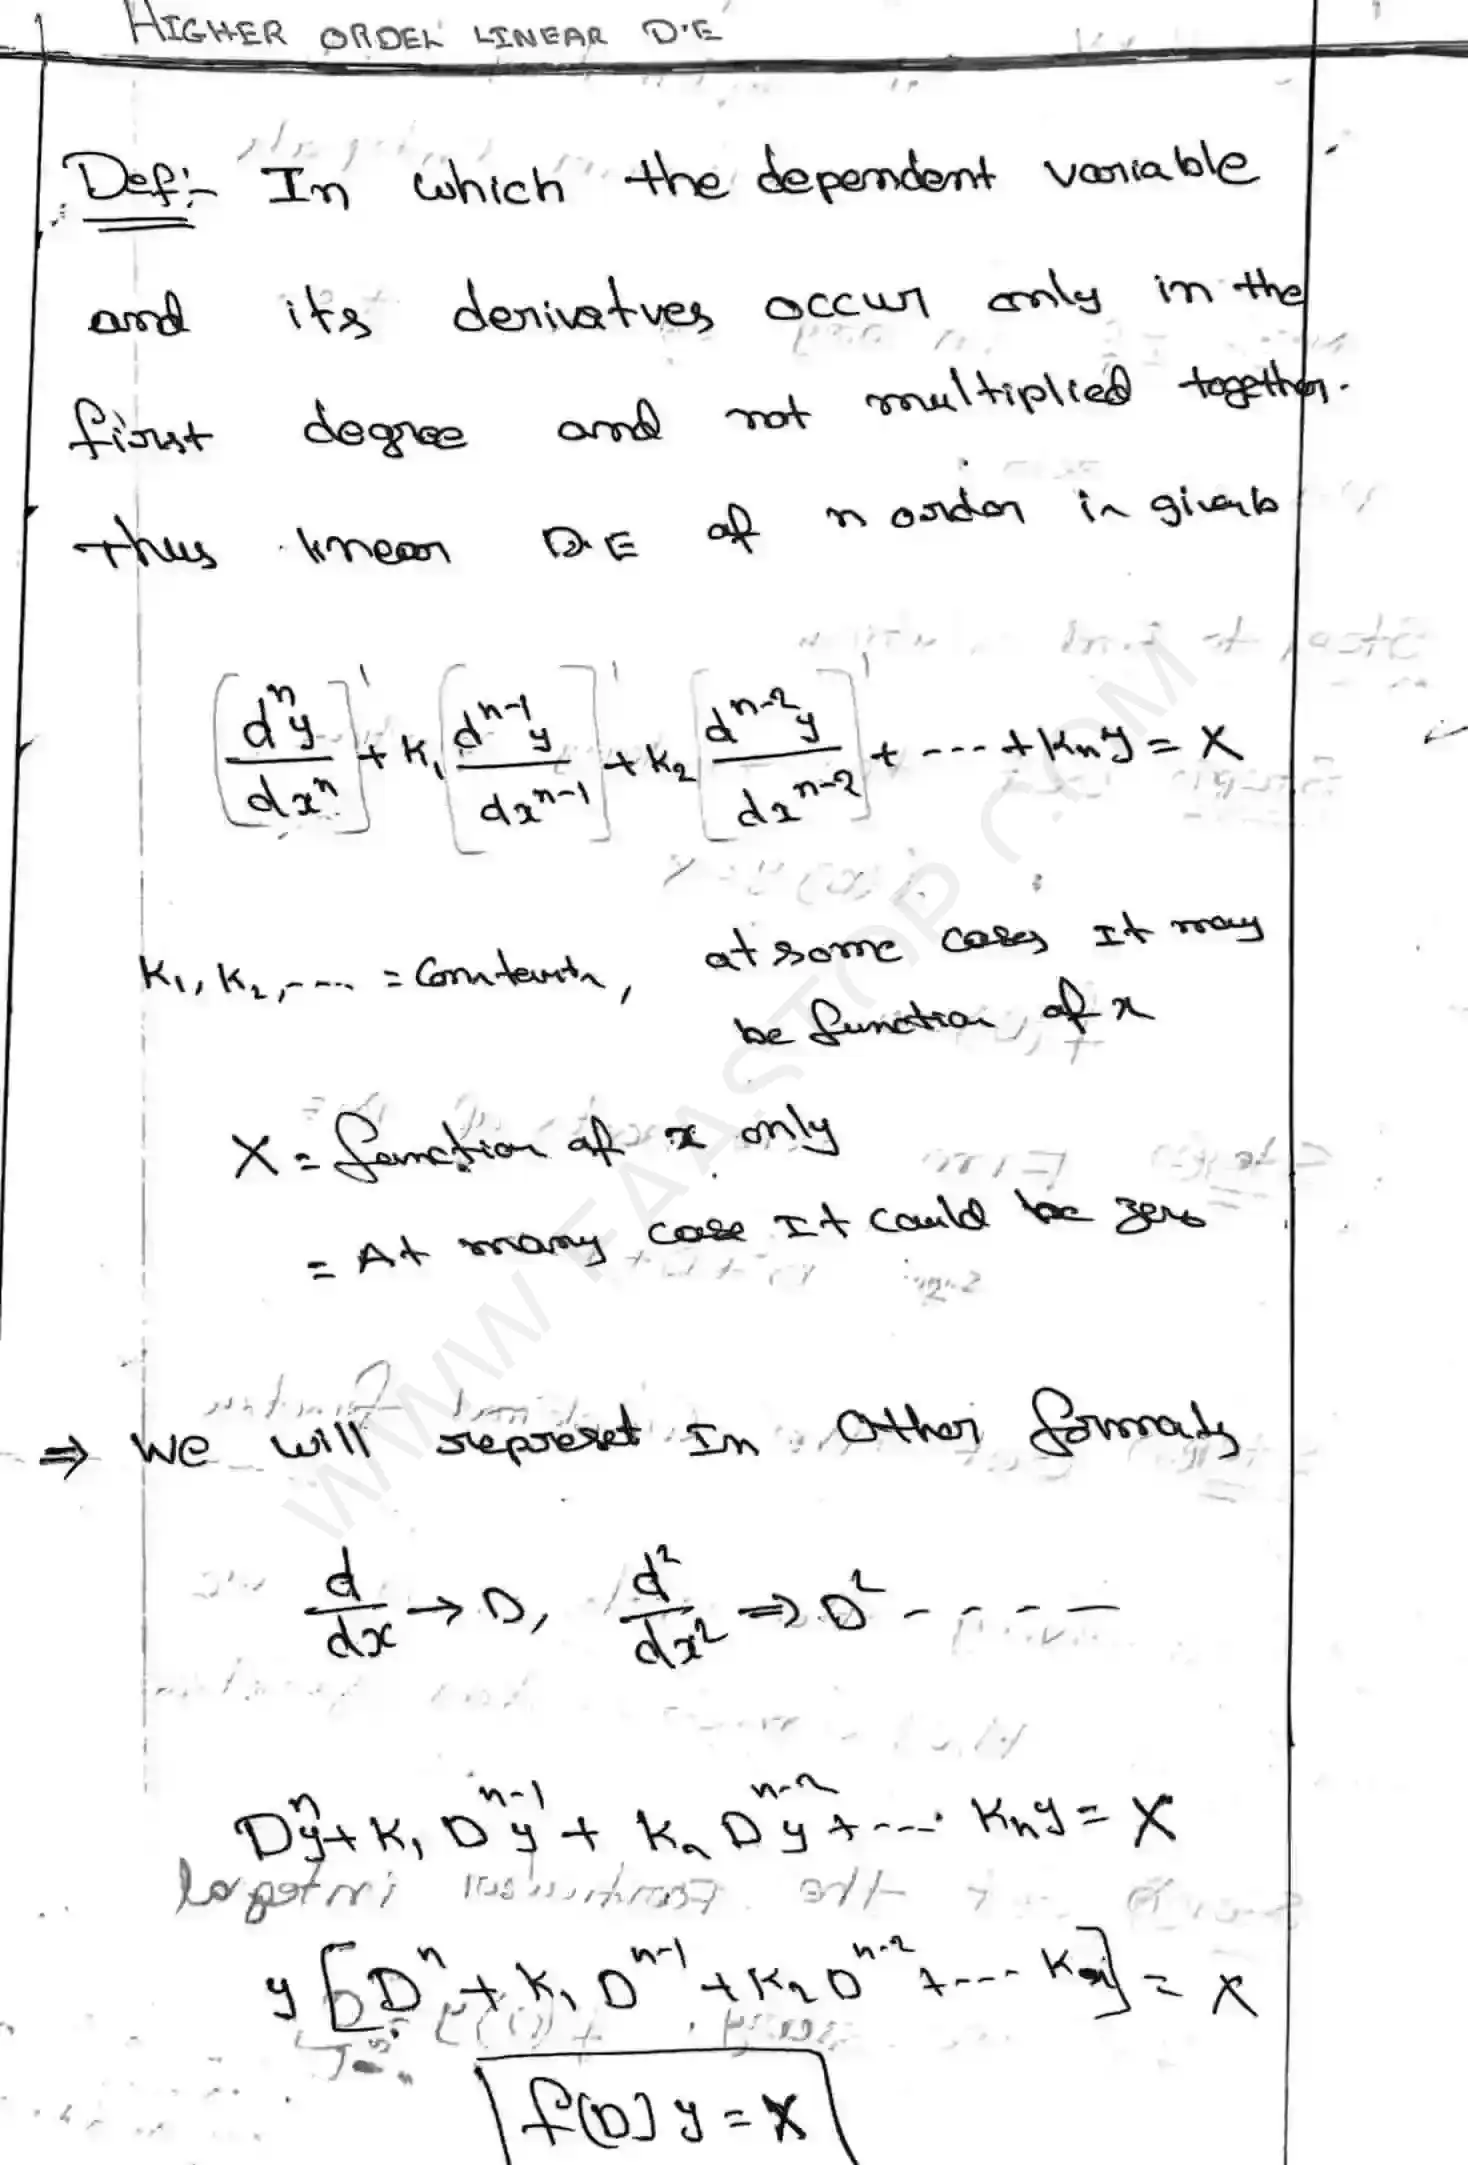 HIGHER ORDER LINEAR D.E
Def:- In which the dependent variable
and its derivatves occur only in the
first degree and not multiplied together.
Thus linear D.E of n order in givenb
[dⁿy/dxⁿ]¹ + K₁[dⁿ⁻¹y/dxⁿ⁻¹]¹ + K₂[dⁿ⁻²y/dxⁿ⁻²]¹ + ---- + Kₙy = X
K₁, K₂, ---- = Constants, at some cases It may
be function of x
X = function of x only
= At many case It could be zero
⇒ We will represet In Other formats
d/dx → D, d²/dx² ⇒ D² - - - - -
Dⁿy + K₁ Dⁿ⁻¹y + K₂ Dⁿ⁻²y + ---- Kₙy = X
y [Dⁿ + K₁ Dⁿ⁻¹ + K₂ Dⁿ⁻² + ---- Kₙ] = X
f(D) y = X
WWW.FAASTOP.COM